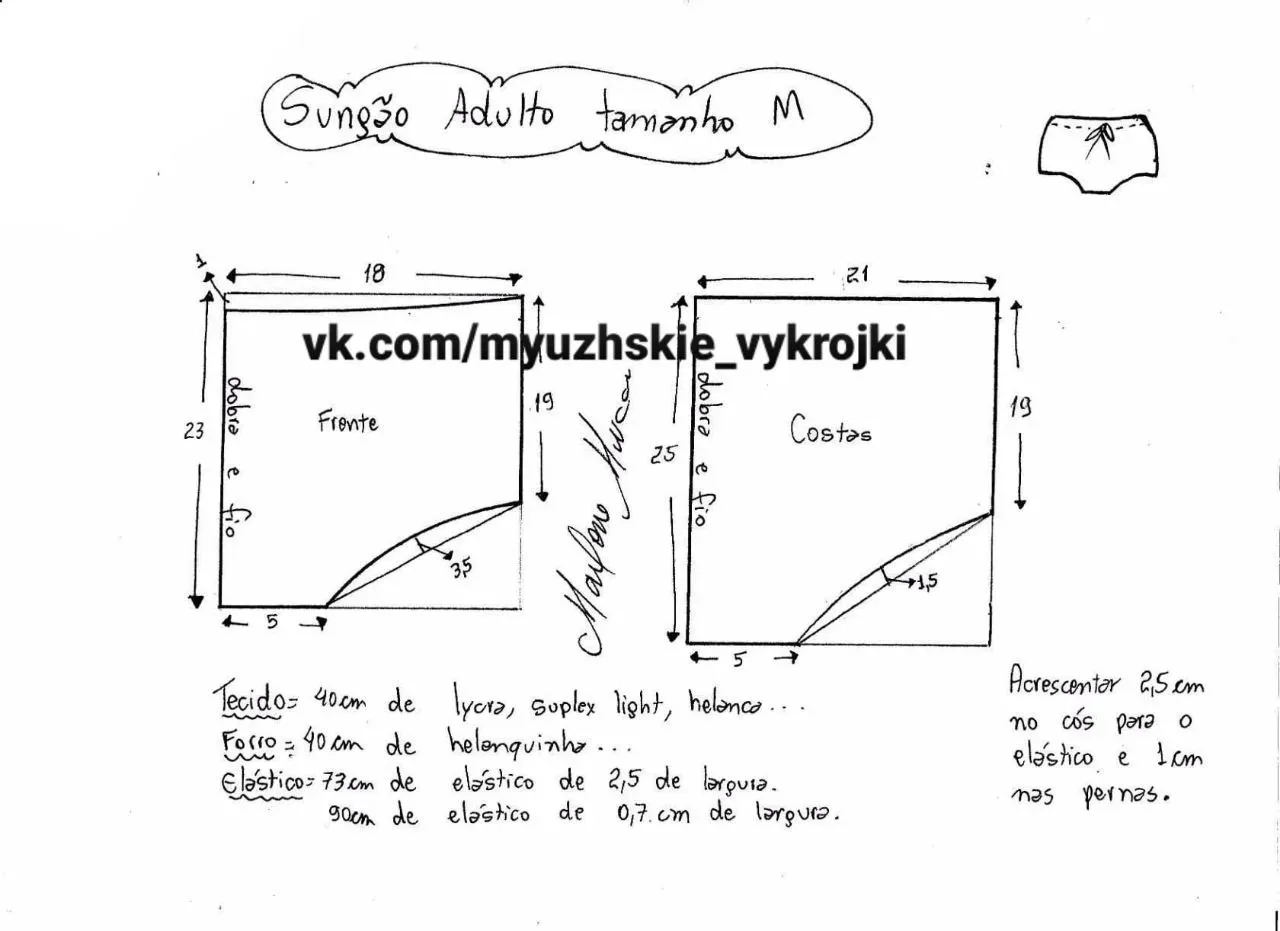 Sungão Adulto tamanho M
1
18
23
19
dobra e fio
Frente
3,5
5
vk.com/myuzhskie_vykrojki
21
25
19
dobra e fio
Costas
1,5
5
Tecido= 40cm de lycra, suplex light, helanca...
Forro= 40cm de helanquinha...
Elástico= 73cm de elástico de 2,5 de largura.
90cm de elástico de 0,7cm de largura.
Acrescentar 2,5cm
no cós para o
elástico e 1cm
nas pernas.